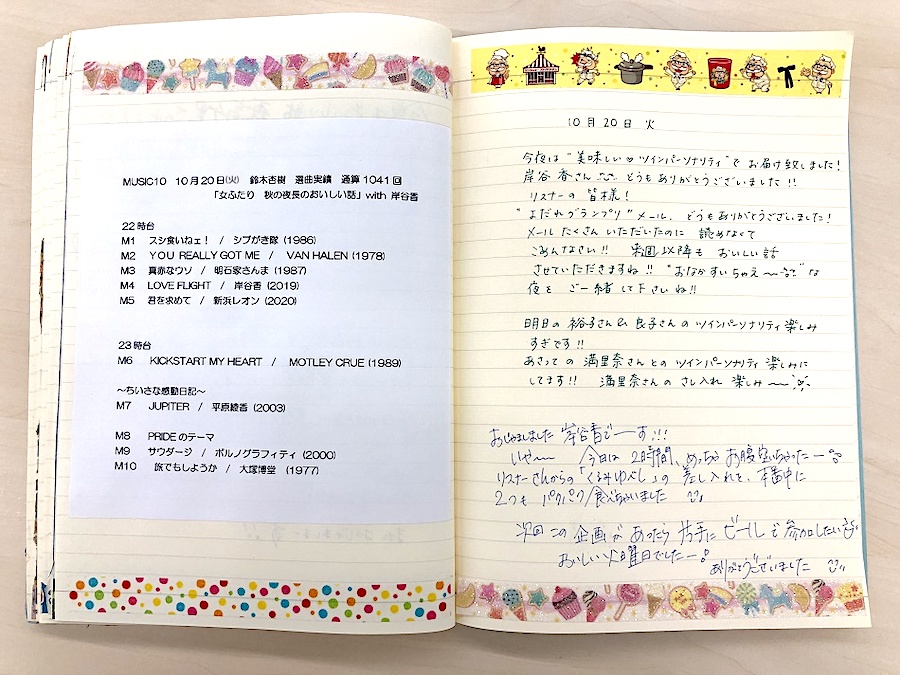 MUSIC10 10月20日(火) 鈴木杏樹 選曲実績 通算1041回
「女ふたり 秋の夜長のおいしい話」with 岸谷香
22時台
M1 スシ食いねェ! / シブがき隊 (1986)
M2 YOU REALLY GOT ME / VAN HALEN (1978)
M3 真赤なウソ / 明石家さんま (1987)
M4 LOVE FLIGHT / 岸谷香 (2019)
M5 君を求めて / 新浜レオン (2020)
23時台
M6 KICKSTART MY HEART / MOTLEY CRUE (1989)
〜ちいさな感動日記〜
M7 JUPITER / 平原綾香 (2003)
M8 PRIDEのテーマ
M9 サウダージ / ポルノグラフィティ (2000)
M10 旅でもしようか / 大塚博堂 (1977)
10月20日 火
今夜は"美味しい♡ツインパーソナリティ"でお届け致しました!
岸谷香さん どうもありがとうございました!!
リスナーの皆様!
"よだれグランプリ"メール、どうもありがとうございました!
メールたくさんいただいたのに 読めなくて
ごめんなさい!! 来週以降も おいしい話
させていただきますね!! "おなかすいちゃえ〜"な
夜を ご一緒して下さいね!!
明日の裕子さん&良子さんのツインパーソナリティ楽しみ
すぎです!!
あさっての満里奈さんとのツインパーソナリティ楽しみに
してます!! 満里奈さんのさし入れ 楽しみ〜
おじゃましました 岸谷香でーす!!!
いや〜 今日は2時間、めっちゃお腹空いちゃったー。
リスナーさんからの「くるみゆべし」の差し入れを、本番中に
2つも パクパク食べちゃいました
次回この企画があったら片手にビールで参加したいです
おいしい火曜日でしたー。
ありがとうございました